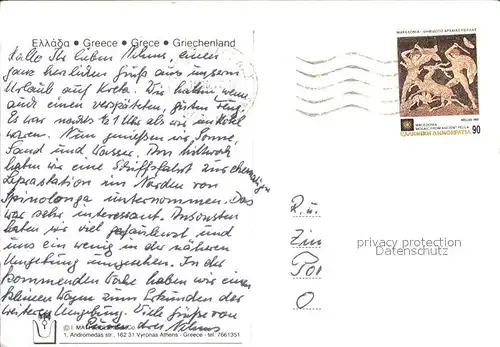 Ελλάδα • Greece • Grece • Griechenland
Hallo Ihr lieben Nihms, einen
ganz herzlichen Gruß aus unserm
Urlaub auf Kreta. Die hatten wenn
auch einen verspäteten, guten Flug.
Es war nachts 1 Uhr als wir im Hotel
waren. Nun genießen wir Sonne,
Sand und Wasser. Am Mittwoch
haben wir eine Schiffsfahrt zur ehemaligen
Leprastation im Norden von
Spinalonga unternommen. Das
war sehr interessant. Ansonsten
haben wir viel gefaulenzt und
uns ein wenig in der näheren
Umgebung umgesehen. In der
kommenden Woche haben wir einen
kleinen Wagen zum Erkunden der
weiteren Umgebung. Viele Grüße von
Euren drei Nihms
© I. MA Co
1, Andromedas str., 162 31 Vyronas Athens - Greece - tel. 7661351
ΜΑΚΕΔΟΝΙΑ - ΨΗΦΙΔΩΤΟ ΑΡΧΑΙΑΣ ΠΕΛΛΑΣ
HELLAS 1992
MACEDONIA
MOSAIC FROM ANCIENT PELLA
ΕΛΛΗΝΙΚΗ ΔΗΜΟΚΡΑΤΙΑ 90
R. u.
Zim
Por
O
privacy protection
Datenschutz